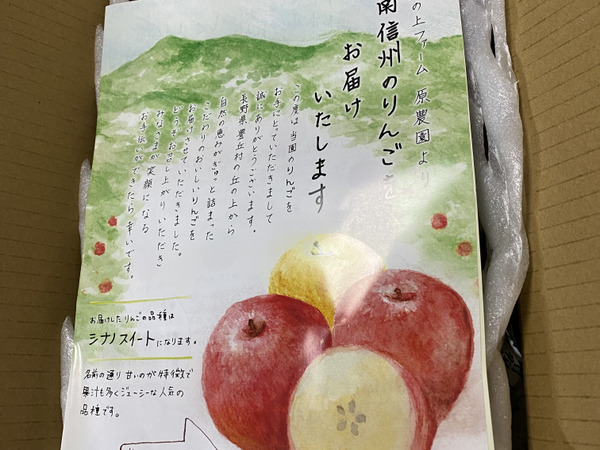 の上ファーム 原農園より
南信州のりんごを
お届け
いたします
この度は当園のりんごを
お手にとっていただきまして
誠にありがとうございます。
長野県豊丘村の丘の上から
自然の恵みがぎゅっと詰まった
こだわりのおいしいりんごを
お届けさせていただきました。
どうぞお召し上がりいただき
みなさまが笑顔になる
お手伝いができたら幸いです。
お届けしたりんごの品種は
シナノスイートになります。
名前の通り甘いのが特徴で
果汁も多くジューシーな人気の
品種です。